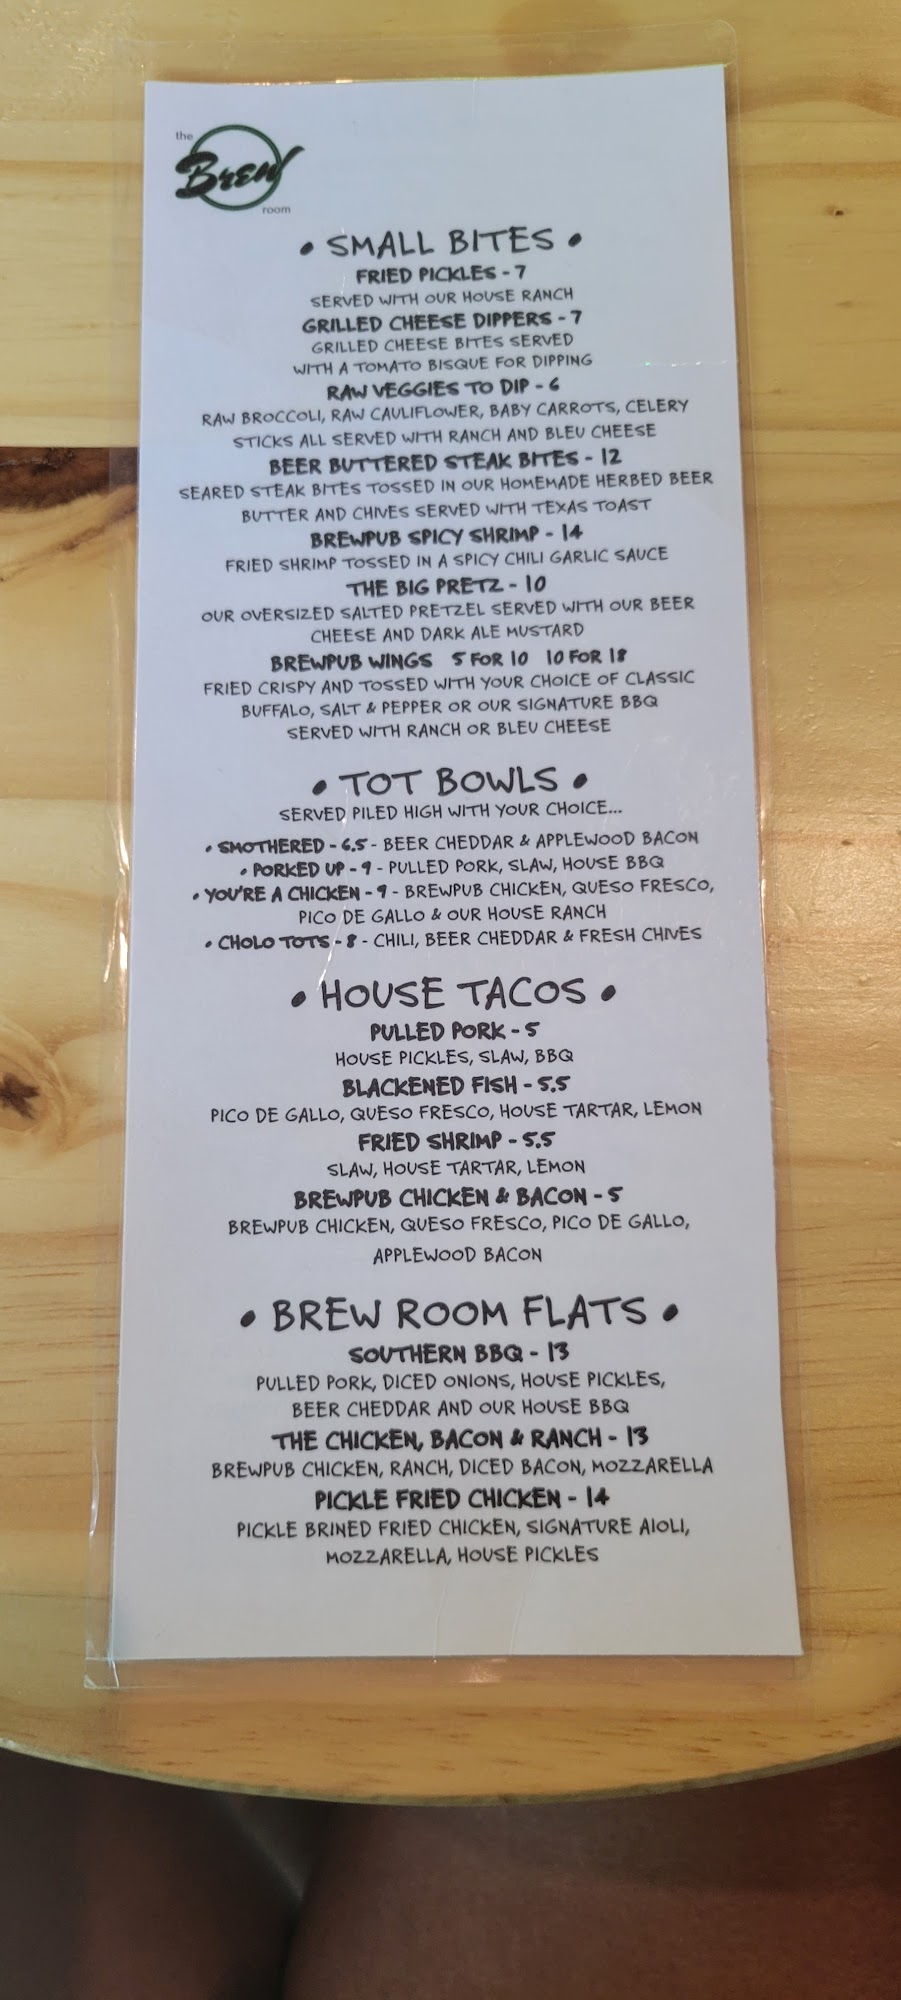 the
Brew
room
• SMALL BITES •
FRIED PICKLES - 7
SERVED WITH OUR HOUSE RANCH
GRILLED CHEESE DIPPERS - 7
GRILLED CHEESE BITES SERVED
WITH A TOMATO BISQUE FOR DIPPING
RAW VEGGIES TO DIP - 6
RAW BROCCOLI, RAW CAULIFLOWER, BABY CARROTS, CELERY
STICKS ALL SERVED WITH RANCH AND BLEU CHEESE
BEER BUTTERED STEAK BITES - 12
SEARED STEAK BITES TOSSED IN OUR HOMEMADE HERBED BEER
BUTTER AND CHIVES SERVED WITH TEXAS TOAST
BREWPUB SPICY SHRIMP - 14
FRIED SHRIMP TOSSED IN A SPICY CHILI GARLIC SAUCE
THE BIG PRETZ - 10
OUR OVERSIZED SALTED PRETZEL SERVED WITH OUR BEER
CHEESE AND DARK ALE MUSTARD
BREWPUB WINGS 5 FOR 10 10 FOR 18
FRIED CRISPY AND TOSSED WITH YOUR CHOICE OF CLASSIC
BUFFALO, SALT & PEPPER OR OUR SIGNATURE BBQ
SERVED WITH RANCH OR BLEU CHEESE
• TOT BOWLS •
SERVED PILED HIGH WITH YOUR CHOICE...
• SMOTHERED - 6.5 - BEER CHEDDAR & APPLEWOOD BACON
• PORKED UP - 9 - PULLED PORK, SLAW, HOUSE BBQ
• YOU'RE A CHICKEN - 9 - BREWPUB CHICKEN, QUESO FRESCO,
PICO DE GALLO & OUR HOUSE RANCH
• CHOLO TOTS - 8 - CHILI, BEER CHEDDAR & FRESH CHIVES
• HOUSE TACOS •
PULLED PORK - 5
HOUSE PICKLES, SLAW, BBQ
BLACKENED FISH - 5.5
PICO DE GALLO, QUESO FRESCO, HOUSE TARTAR, LEMON
FRIED SHRIMP - 5.5
SLAW, HOUSE TARTAR, LEMON
BREWPUB CHICKEN & BACON - 5
BREWPUB CHICKEN, QUESO FRESCO, PICO DE GALLO,
APPLEWOOD BACON
• BREW ROOM FLATS •
SOUTHERN BBQ - 13
PULLED PORK, DICED ONIONS, HOUSE PICKLES,
BEER CHEDDAR AND OUR HOUSE BBQ
THE CHICKEN, BACON & RANCH - 13
BREWPUB CHICKEN, RANCH, DICED BACON, MOZZARELLA
PICKLE FRIED CHICKEN - 14
PICKLE BRINED FRIED CHICKEN, SIGNATURE AIOLI,
MOZZARELLA, HOUSE PICKLES